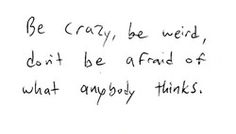 Be crazy, be weird,
don't be afraid of
what anybody thinks.